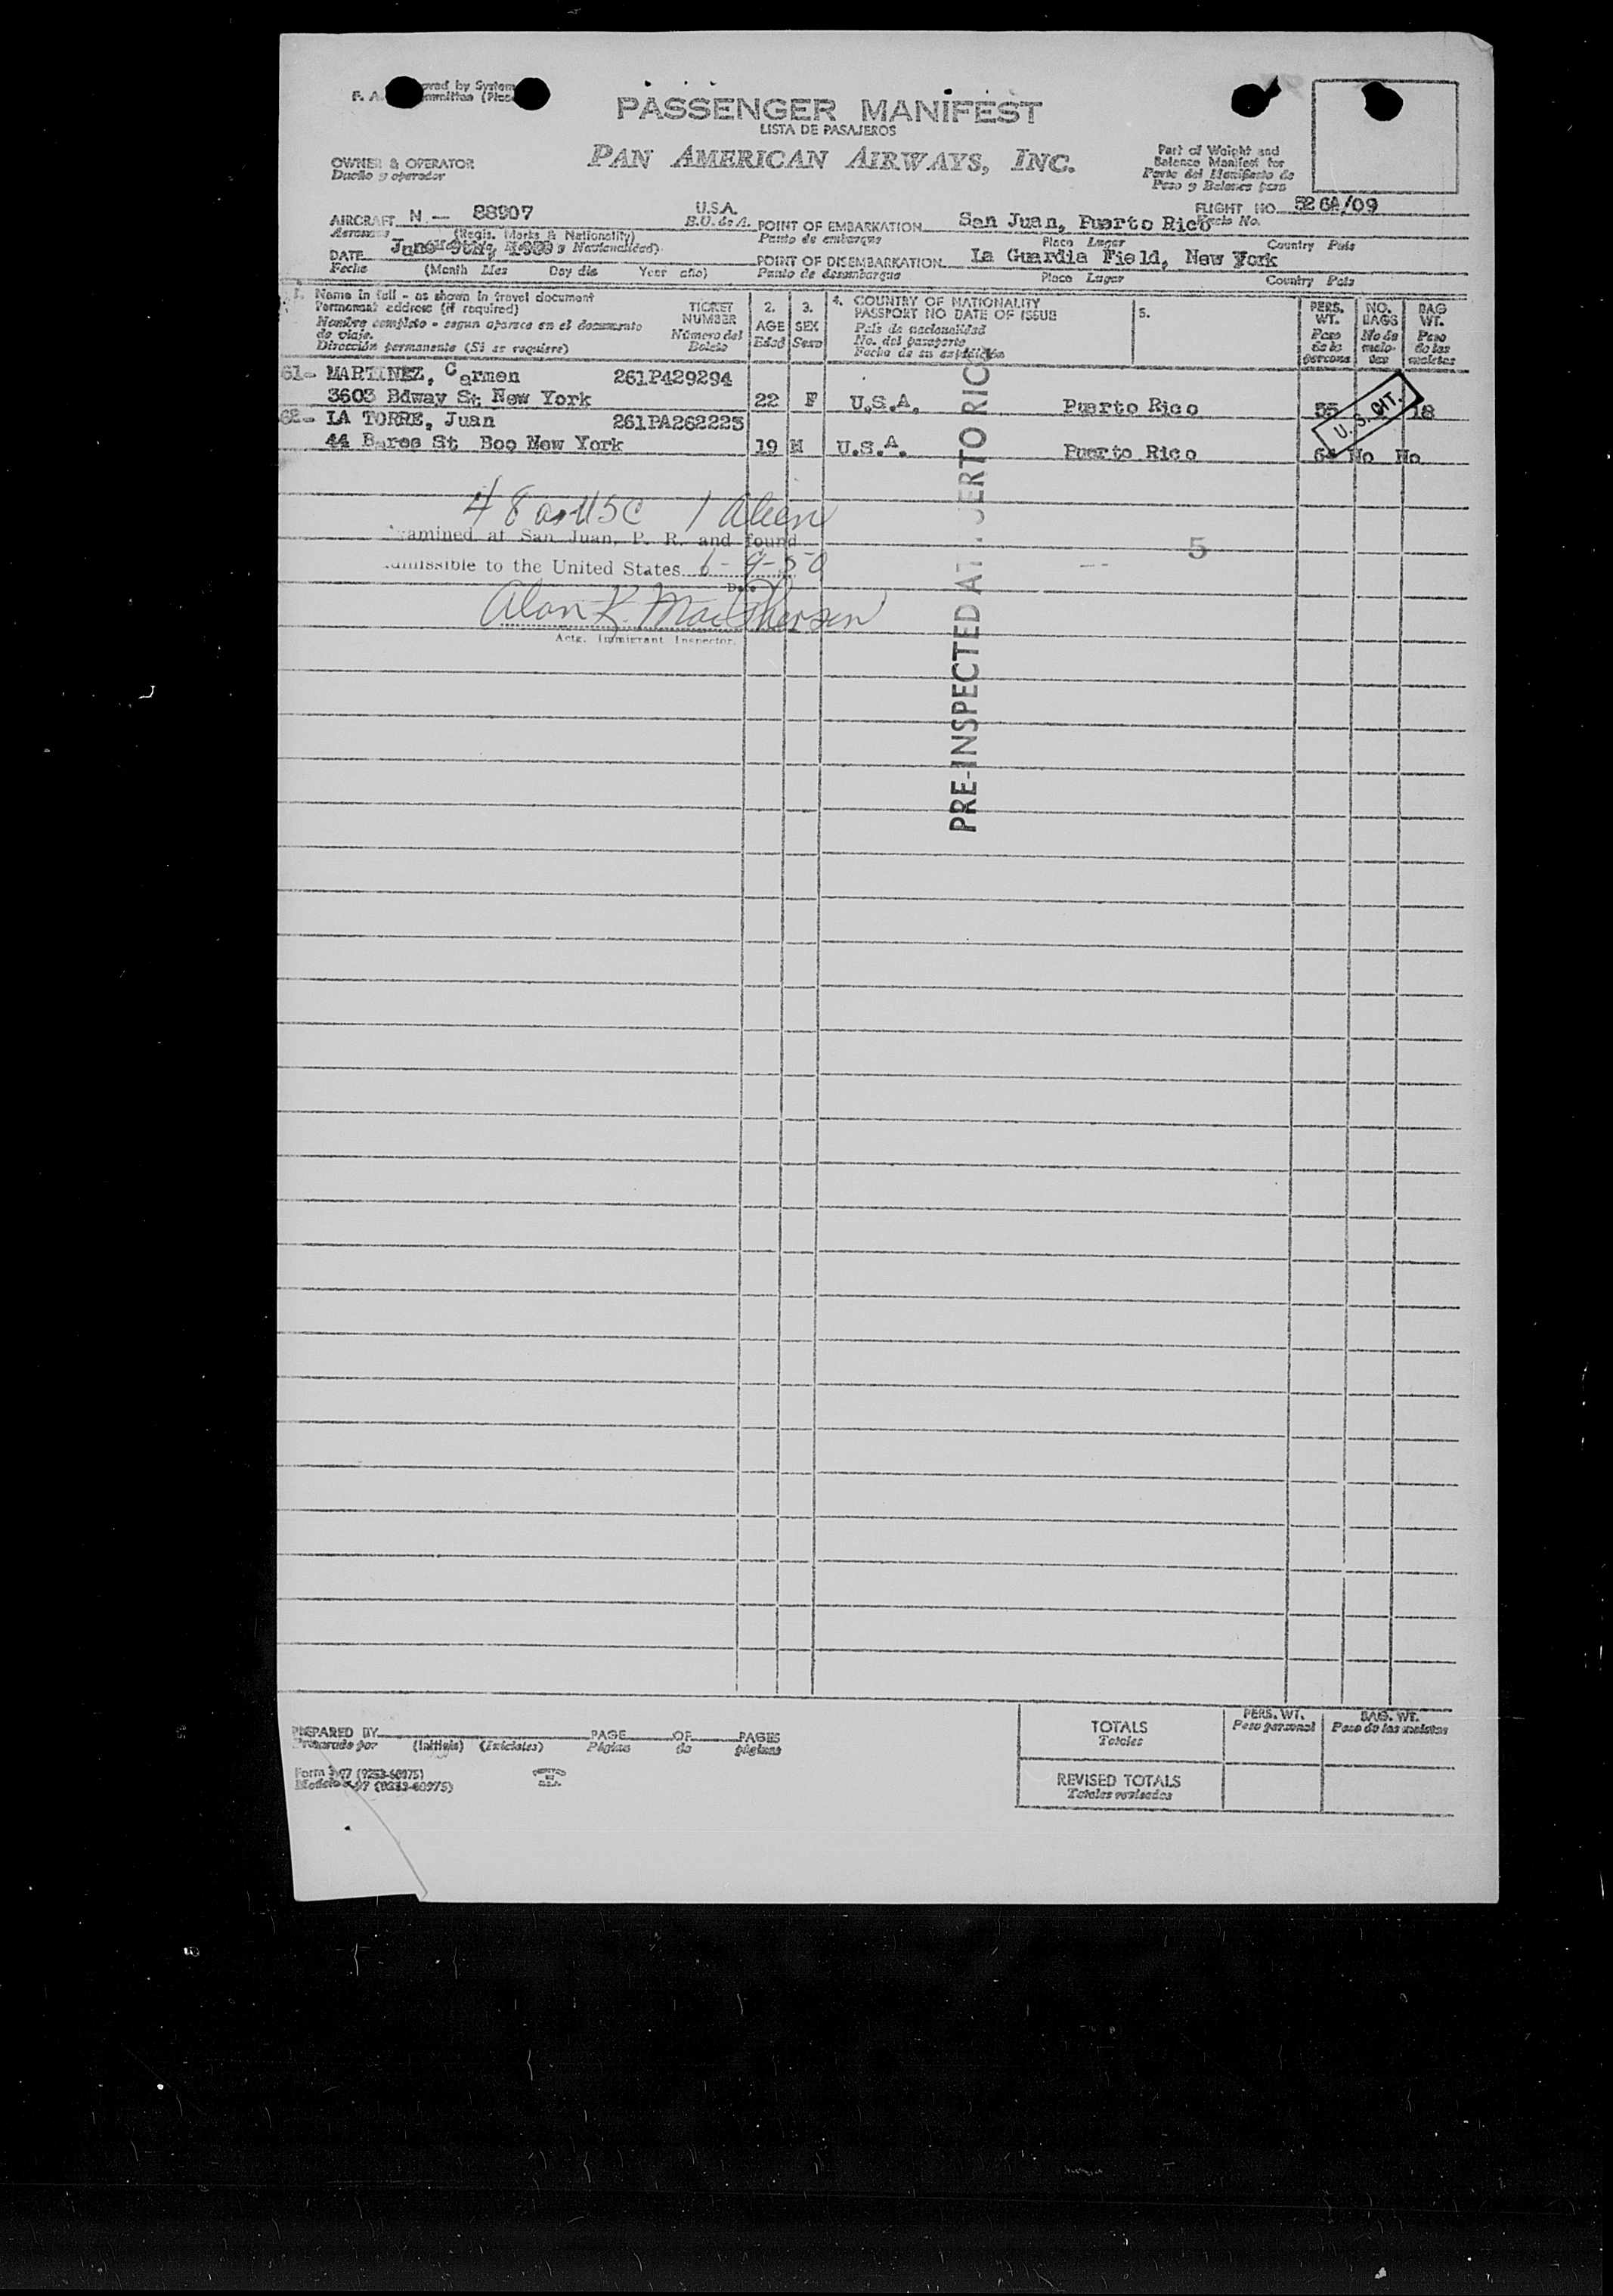 PASSENGER MANIFEST
LISTA DE PASAJEROS
PAN AMERICAN AIRWAYS, INC.
OWNER & OPERATOR
Dueño y operador
Part of Weight and
Balance Manifest for
Parte del Manifiesto de
Peso y Balance para
AIRCRAFT N - 88907 U.S.A.
Aeronave (Regis. Marks & Nationality) E.U. de A.
POINT OF EMBARKATION San Juan, Puerto Rico
Punto de embarque Place Lugar Country País
FLIGHT NO. 526A/09
Vuelo No.
DATE June 9th,
Fecha (Month Mes Day día Year año)
POINT OF DISEMBARKATION La Guardia Field, New York
Punto de desembarque Place Lugar Country País
1. Name in full - as shown in travel document
Permanent address (if required)
Nombre completo - segun aparece en el documento
de viaje.
Dirección permanente (Si se requiere)
TICKET
NUMBER
Número del
Boleto
2.
AGE
Edad
3.
SEX
Sexo
4. COUNTRY OF NATIONALITY
PASSPORT NO DATE OF ISSUE
País de nacionalidad
No. del pasaporte
Fecha de su expedición
5.
PERS.
WT.
Peso
de la
persona
NO.
BAGS
No de
male-
tas
BAG
WT.
Peso
de las
maletas
61- MARTINEZ, Carmen 261P429294
3603 Bdway St New York 22 F U.S.A. Puerto Rico 55 18
U. S. CIT.
62- LA TORRE, Juan 261PA262225
44 Bares St Boo New York 19 M U.S.A. Puerto Rico 64 No No
48 as USC 1 Alien
Examined at San Juan, P. R. and found
admissible to the United States 6-9-50
Date
Alan K. MacPherson
Actg. Immigrant Inspector.
5
PRE-INSPECTED AT
PREPARED BY PAGE OF PAGES
Preparado por (Initials) (Iniciales) Página de páginas
Form
PRINTED
IN
U.S.A.
TOTALS
Totales
PERS. WT.
Peso personal
BAG. WT.
Peso de las maletas
REVISED TOTALS
Totales revisados